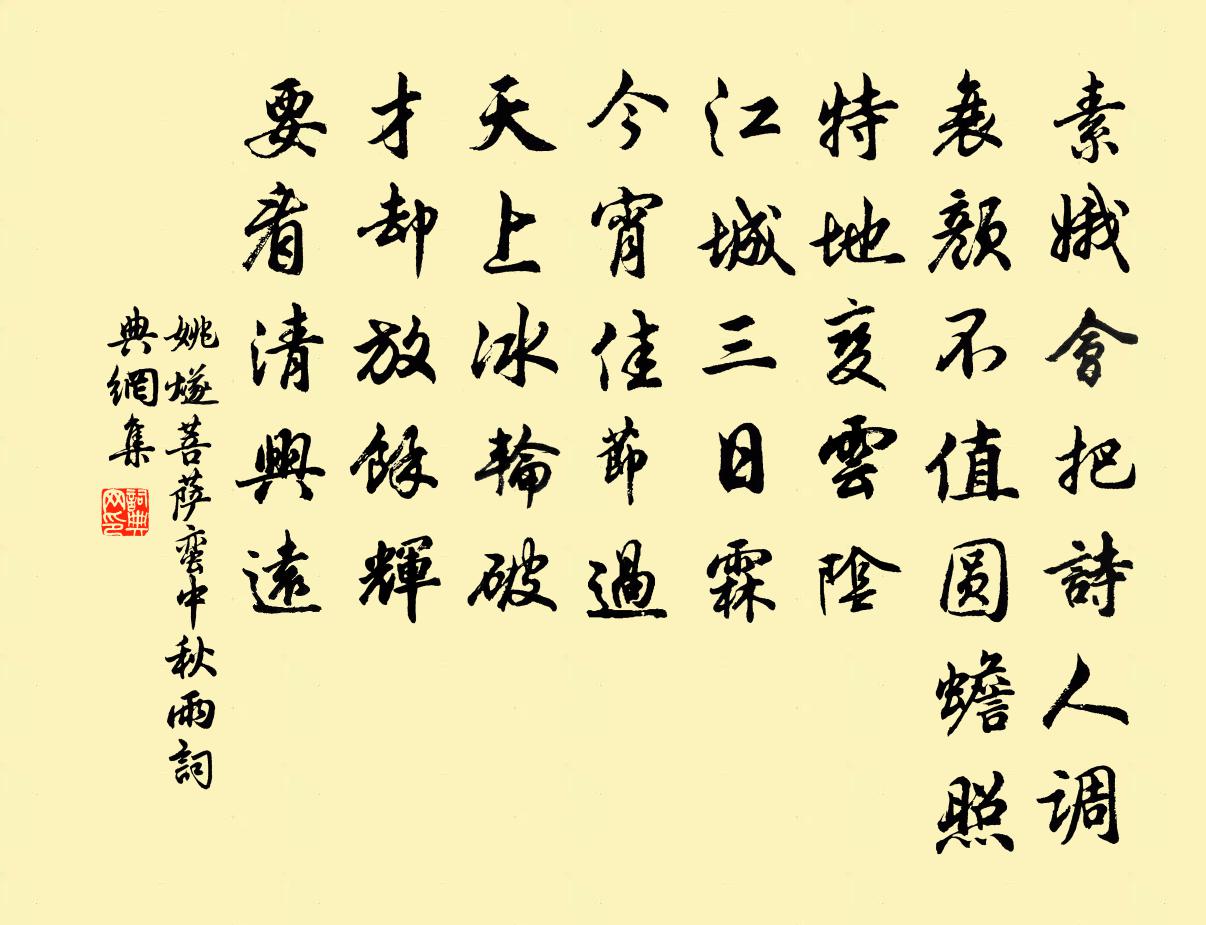 素娥會把詩人调
衰顏不值圆蟾照
特地变雲陰
江城三日霖
今宵佳節過
天上冰輪破
才却放餘輝
要看清興遠
姚燧菩萨蛮中秋雨詞
典網集
詞典网印